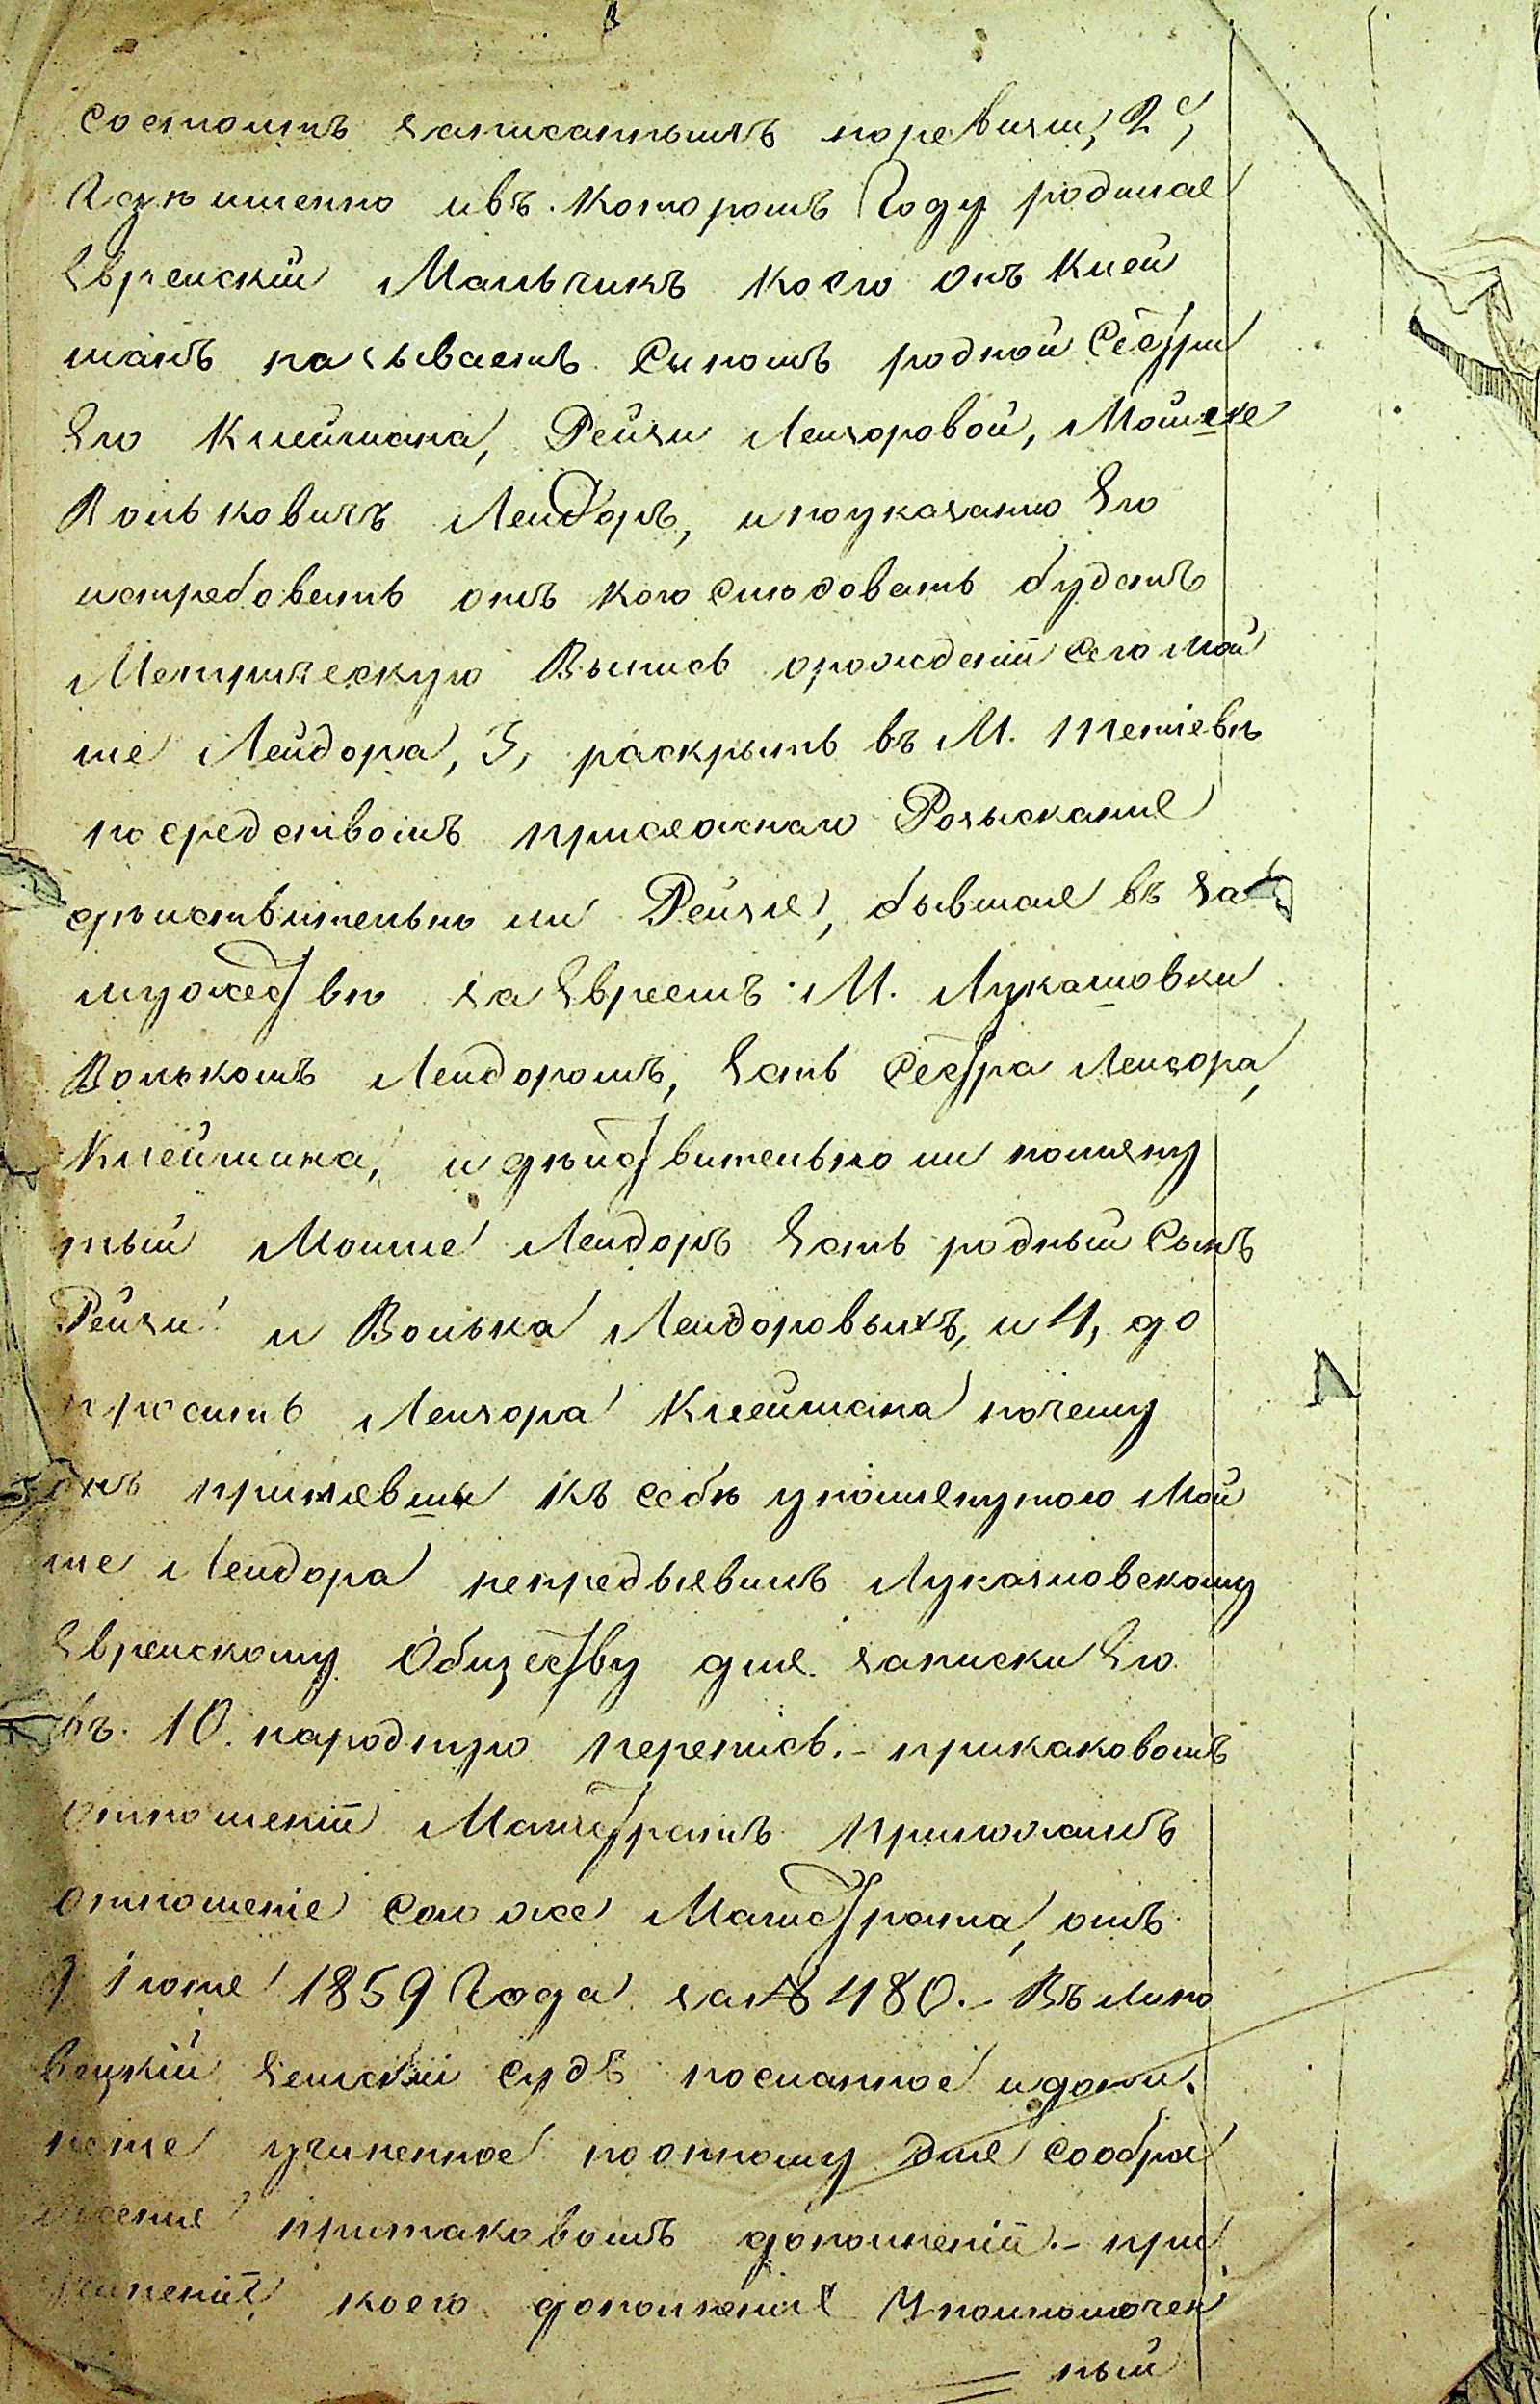 состоитъ записаннымъ поревизіи, 2е,
гдѣ именно ивъ которомъ Году родился
Еврейскій Мальчикъ коего онъ Клей
манъ называетъ Сыномъ родной Сестры
Его Клеймана, Рейзи Лейзоровой, Мошеке
Вольковичъ Лейдоръ, и поуказанію Его
истребовать отъ кого слѣдовать будетъ
Метрическую Выпись орожденіи Сего Мой
ше Лейдора, 3, раскрыть въ М. Тетіевѣ
посредствомъ присяжнаго Розысканія
дѣйствительно ли Рейзя, бывшая въ за
мужествѣ за Евреемъ М. Лукашовки
Волькомъ Лейдоромъ, Есть Сестра Лейзора,
Клеймана, и дѣйствительно ли помяну
тый Мошше Лейдоръ Есть родный Сынъ
Рейзи и Волька Лейдоровыхъ, и 4, до
просить Лейзора Клеймана почему
онъ принявши къ себѣ упомянутого Мой
ше Лейдора непредъявилъ Лукашовскому
Еврейскому Обществу для записки Его
въ 10. народную перепись. - прикаковомъ
отношеніи Магистратъ приложилъ
отношеніе Сего же Магистрата, отъ
9 Іюня 1859 Года за № 480. - Въ Липо
вецкій Земскій Судъ посланное идопол.
неніе учиненное поонному для Сообра
женія притаковомъ дополненіи. - при
чиненіи коего дополненія Уполномочен
ный